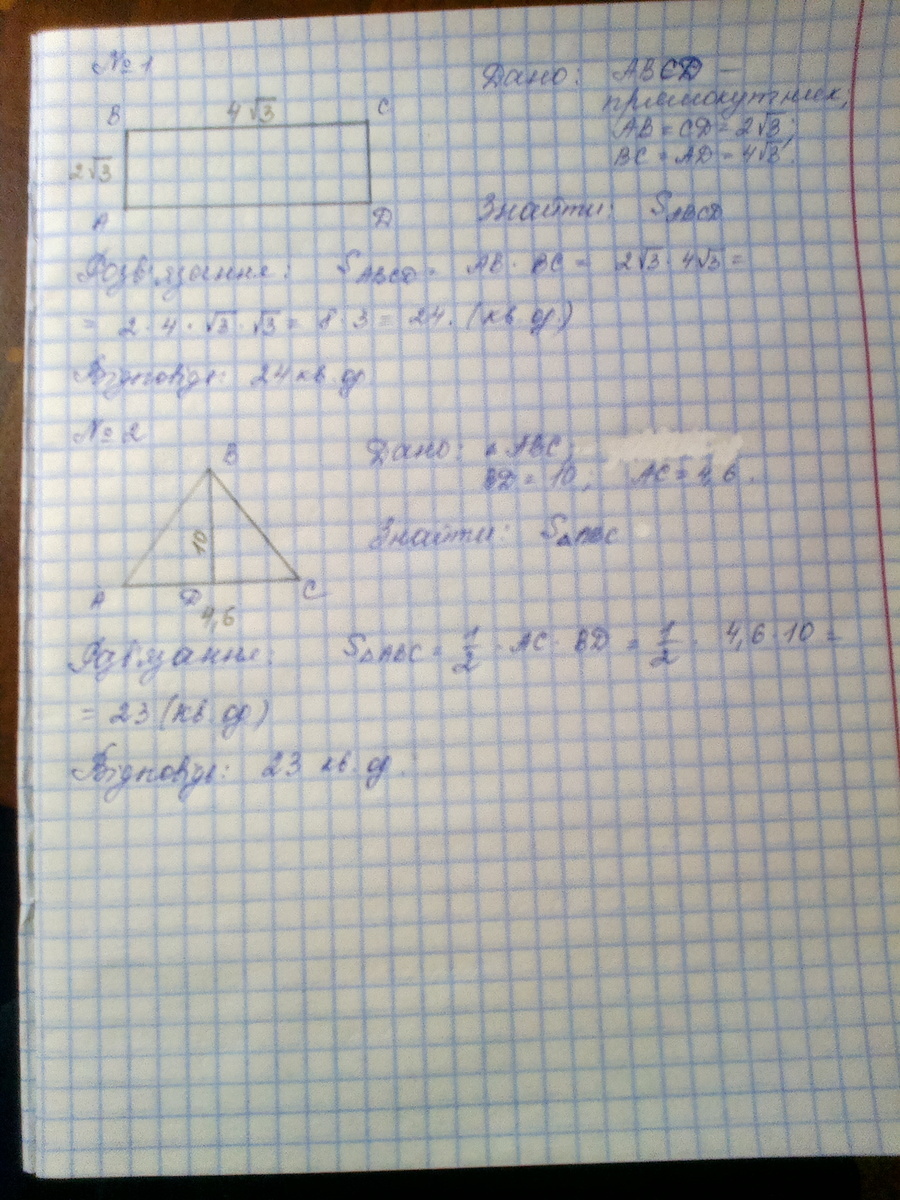 № 1
Дано: ABCD –
прямокутник;
AB = CD = 2√3;
BC = AD = 4√3.
B 4√3 C
2√3
A D
Знайти: S_ABCD
Розв'язання: S_ABCD = AB · BC = 2√3 · 4√3 =
= 2 · 4 · √3 · √3 = 8 · 3 = 24. (кв. од)
Відповідь: 24 кв. од
№ 2
Дано: △ABC;
BD = 10; AC = 4,6.
Знайти: S△ABC
B
10
A D C
4,6
Розв'язання: S△ABC = 1/2 · AC · BD = 1/2 · 4,6 · 10 =
= 23 (кв. од)
Відповідь: 23 кв. од.